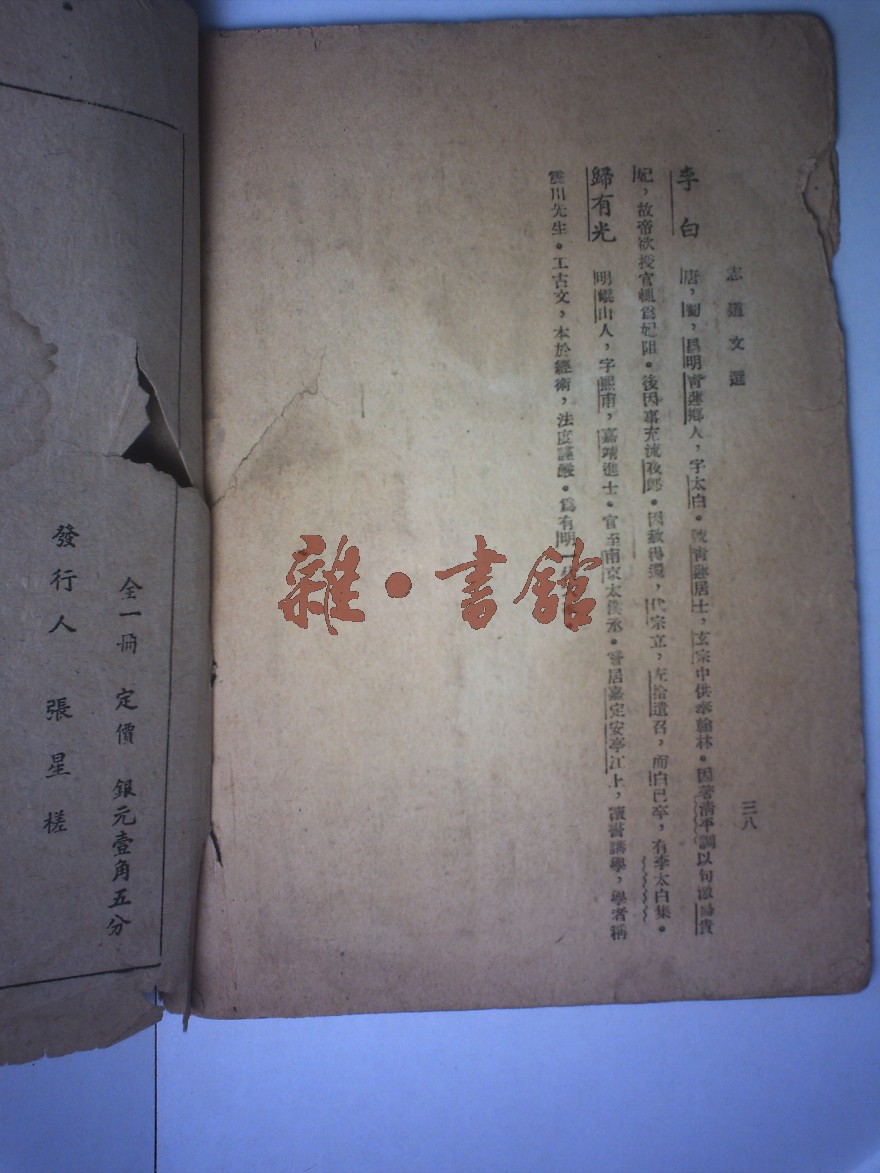 志道文選
三八
李白 唐，蜀，昌明靑蓮鄉人，字太白。號靑蓮居士，玄宗中供奉翰林。因著淸平調以句激楊貴
妃，故帝欲授官輒爲妃阻。後因事充流夜郎。因赦得還，代宗立，左拾遺召，而白已卒，有李太白集。
歸有光 明崐山人，字熙甫，嘉靖進士。官至南京太僕丞。嘗居嘉定安亭江上，讀書講學，學者稱
震川先生。工古文，本於經術，法度謹嚴。爲有明一
雜·書館
全一冊 定價 銀元壹角五分
發行人 張星槎